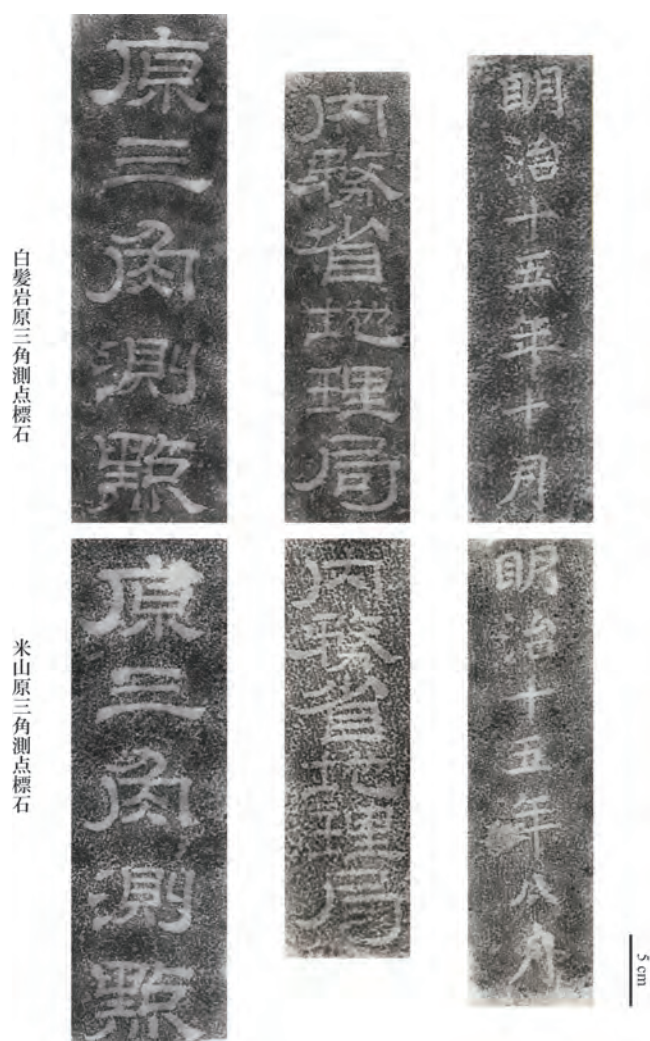 明治十五年十月
内務省地理局
原三角測點
白髪岩原三角測点標石
明治十五年八月
内務省地理局
原三角測點
米山原三角測点標石
5 cm